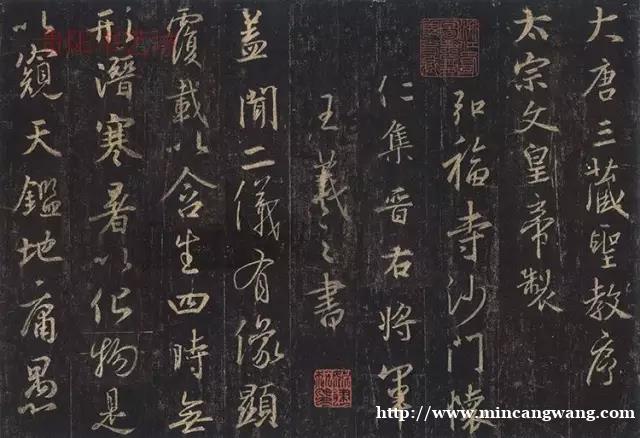 大唐三藏聖教序
太宗文皇帝製
弘福寺沙門懷
仁集晉右將軍
王羲之書
蓋聞二儀有像顯
覆載以含生四時無
形潛寒暑以化物是
以窺天鑑地庸愚
http://www.mincangwang.com